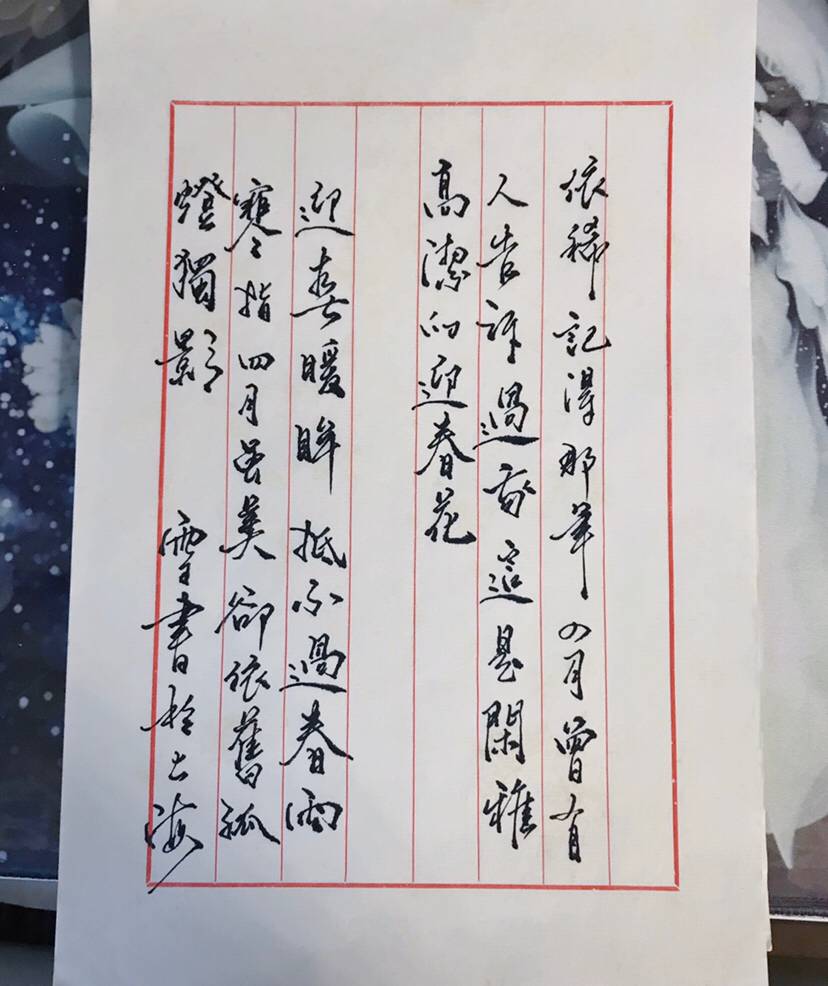 依稀記得那年四月曾有
人告訴過我這是閑雅
高潔的迎春花
迎春暖眸抵不過春雨
寒指四月雖美卻依舊孤
燈獨影 雪書於上海